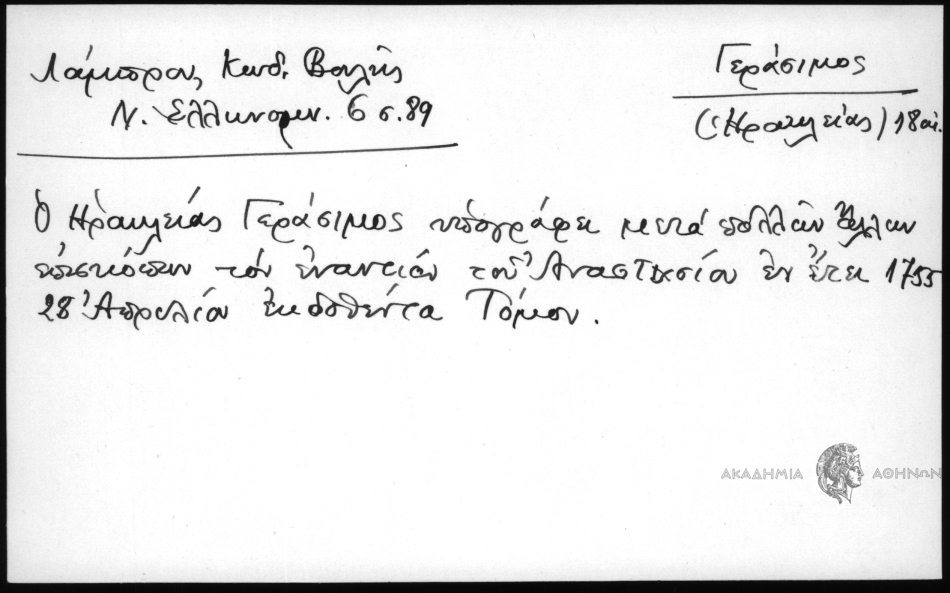 Λάμπρου, Κωδ. Βουλῆς
Ν. Ἑλληνομν. 6 σ. 89
Γεράσιμος
(Ἡρακλείας) 18 αἰ.
Ὁ Ἡρακλείας Γεράσιμος ὑπογράφει μετά πολλῶν ἄλλων
ἐπισκόπων τόν ἐναντίον τοῦ Ἀναβαπτισμοῦ ἐν ἔτει 1755
28 Ἀπριλίου ἐκδοθέντα Τόμον.
ΑΚΑΔΗΜΙΑ ΑΘΗΝΩΝ